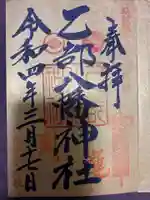 奉拝
乙部八幡神社
令和四年三月十七日